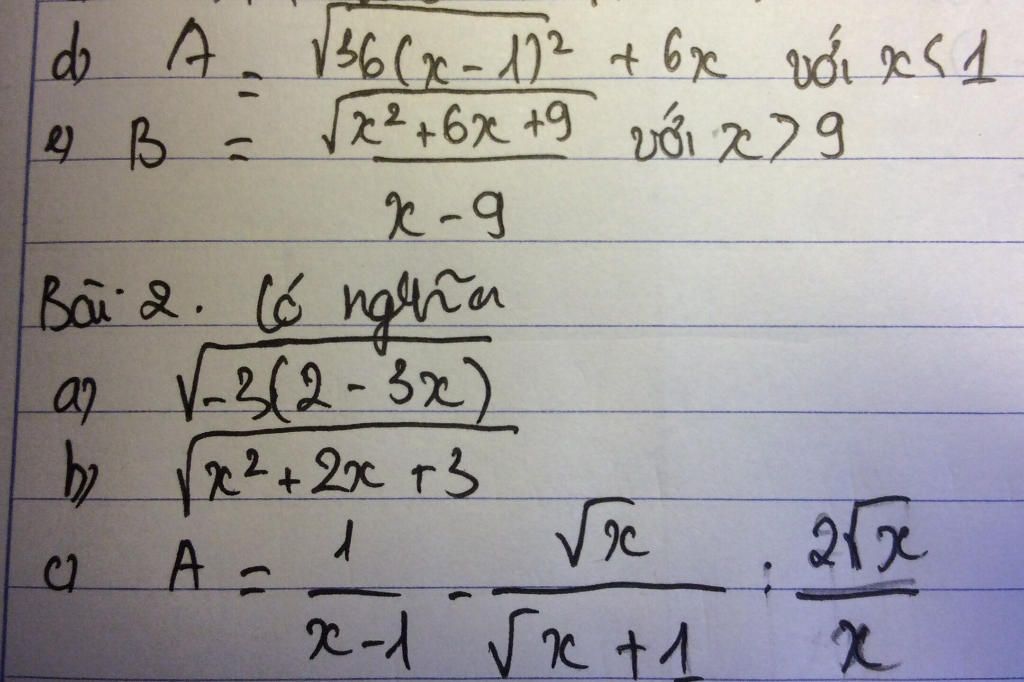 d) A = √36(x-1)² + 6x với x < 1
e) B = √x² + 6x + 9 / x - 9 với x > 9
Bài 2. Có nghĩa
a) √-3(2 - 3x)
b) √x² + 2x + 3
c) A = 1 / x-1 - √x / √x + 1 : 2√x / x